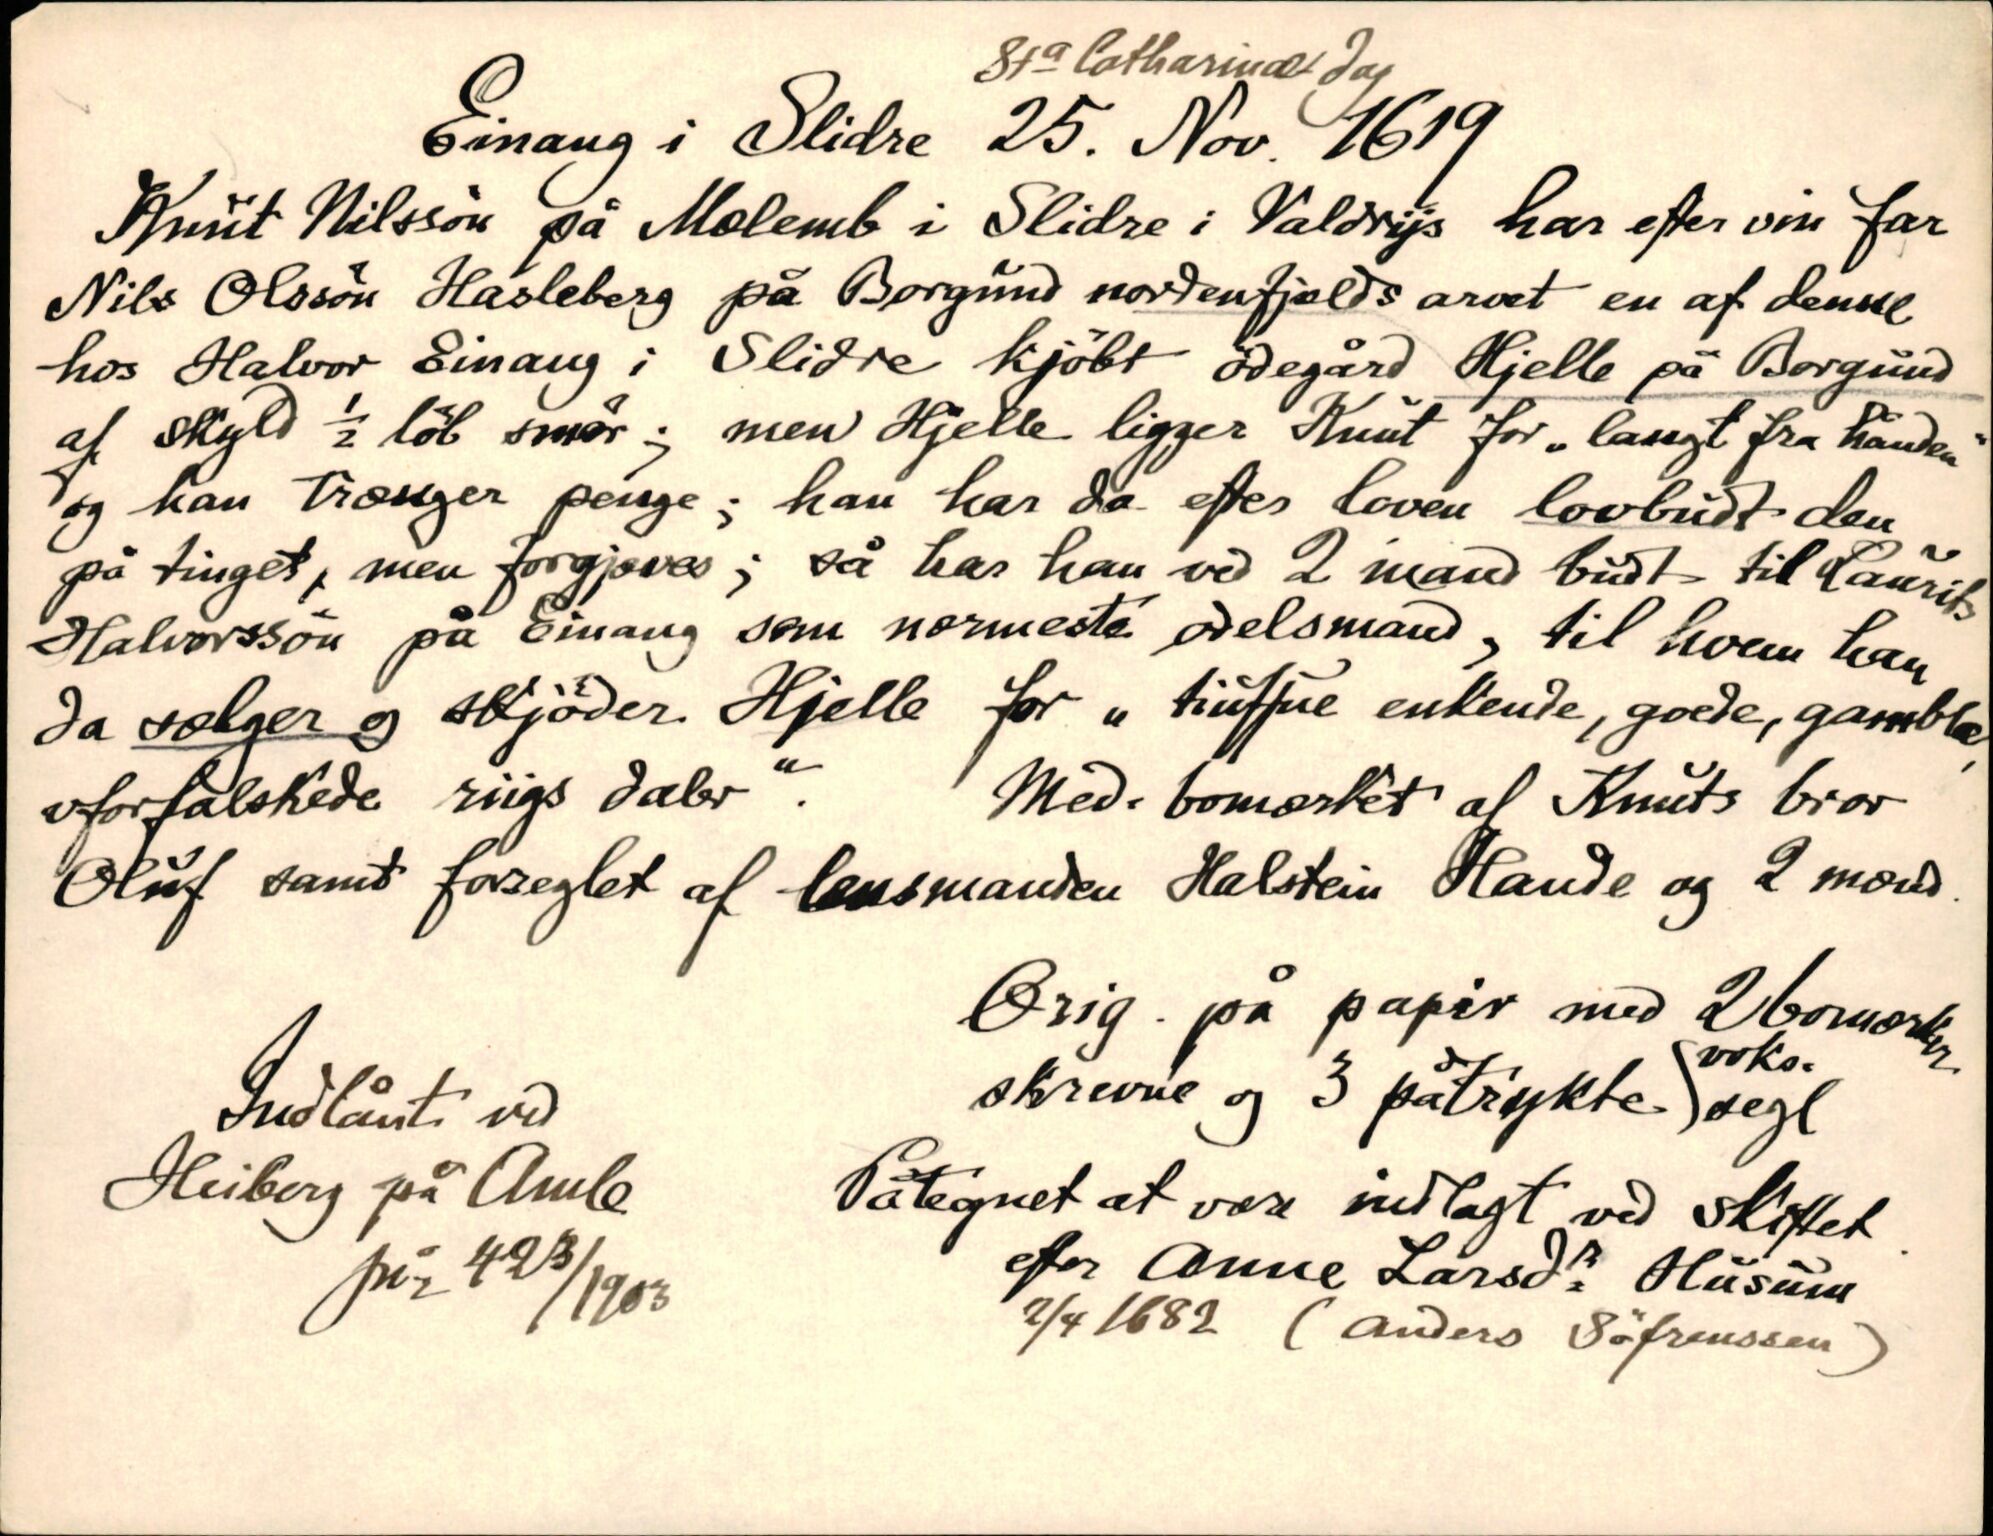 Sta Catharinæ dag
Einang i Slidre 25. Nov. 1619
Knut Nilssön på Mælemb i Slidre i Valdrijs har efter sin far
Nils Olssön Hasleberg på Borgund nordenfjælds arvet en af denne
hos Halvor Einang i Slidre kjöbt ödegård Hjelle på Borgund
af skyld ½ löb smör; men Hjelle ligger Knut for „langt fra handen"
og han trænger penge; han har da efter loven lovbudt den
på tinget, men forgjæves; så har han ved 2 mand budt til Laurits
Halvorssön på Einang som nærmeste odelsmand, til hvem han
da sælger og skjöder Hjelle for „tiuffue enkende, goede, gamble,
vforfalskede riigs daler". Med bomærket af Knuts bror
Oluf samt forseglet af lensmanden Halstein Hande og 2 mænd.
Orig. på papir med 2 bomærker
skrevne og 3 påtrykte voks.
segl
Indlånt ved
Heiberg på Amle
jnr 423/1903
Påtegnet at være indlagt ved skiftet
efter Anne Larsdr Husum
2/4 1682 (Anders Söfrenssen)